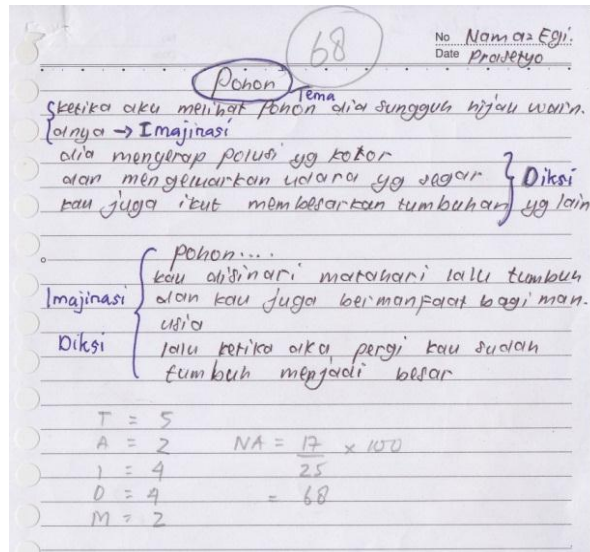 68
No Nama: Egi.
Date Prasetyo
Pohon
Tema
Ketika aku melihat Pohon dia sungguh hijau warn.
anya → Imajinasi
dia mengerap polusi yg kotor
dan mengeluarkan udara yg segar
Diksi
kau juga ikut membesarkan tumbuhan yg lain
Pohon....
kau disinari matahari lalu tumbuh
Imajinasi
dan kau juga bermanfaat bagi man.
usia
Diksi
lalu ketika aka pergi kau sudah
tumbuh menjadi besar
T = 5
A = 2
I = 4
D = 4
M = 2
NA = 17 × 100
25
= 68